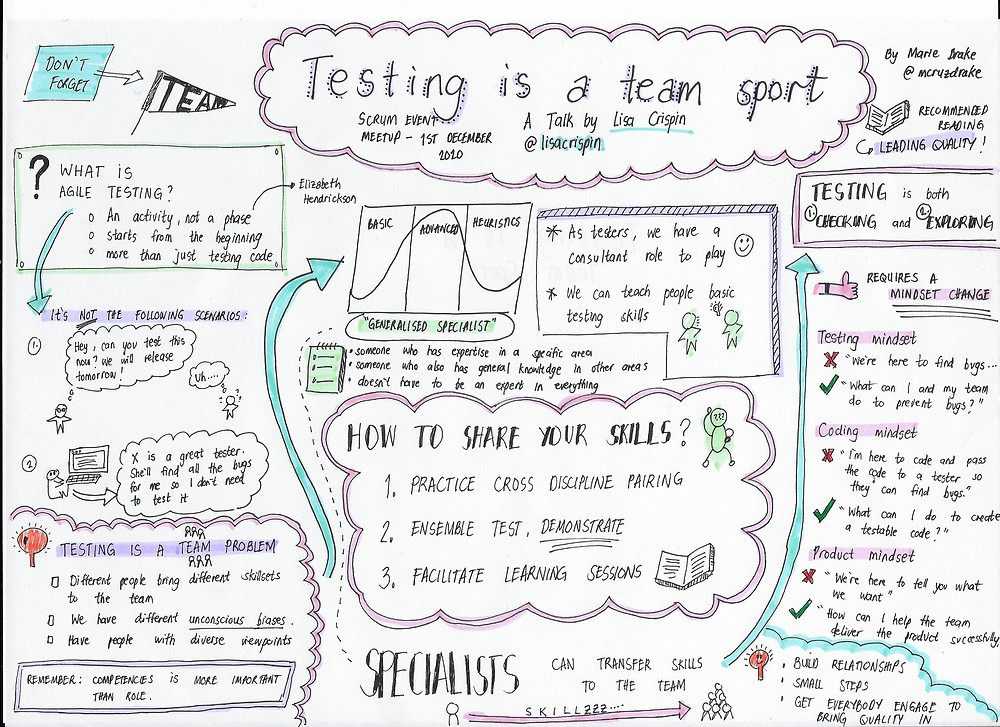 DON'T
FORGET
TEAM
Testing is a team sport
SCRUM EVENT
MEETUP - 1ST DECEMBER
2020
A Talk by Lisa Crispin
@lisacrispin
By Marie Drake
@mcruzdrake
RECOMMENDED
READING
LEADING QUALITY!
? WHAT IS
AGILE TESTING?
o An activity, not a phase
o starts from the beginning
o more than just testing code
Elizabeth
Hendrickson
IT'S NOT THE FOLLOWING SCENARIOS:
1.
Hey, can you test this
now? we will release
tomorrow!
Uh....
2
X is a great tester.
She'll find all the bugs
for me so I don't need
to test it
TESTING IS A TEAM PROBLEM
Different people bring different skillsets
to the team
We have different unconscious biases.
Have people with diverse viewpoints
REMEMBER: COMPETENCIES IS MORE IMPORTANT
THAN ROLE.
BASIC
ADVANCED
HEURISTICS
"GENERALISED SPECIALIST"
• someone who has expertise in a specific area
• someone who also has general knowledge in other areas
• doesn't have to be an expert in everything
* As testers, we have a
consultant role to play
* We can teach people basic
testing skills
HOW TO SHARE YOUR SKILLS?
1. PRACTICE CROSS DISCIPLINE PAIRING
2. ENSEMBLE TEST, DEMONSTRATE
3. FACILITATE LEARNING SESSIONS
SPECIALISTS
CAN TRANSFER SKILLS
TO THE TEAM
SKILLZZZ....
TESTING is both
1 CHECKING and 2 EXPLORING
REQUIRES A
MINDSET CHANGE
Testing mindset
X "We're here to find bugs...
✓ "What can I and my team
do to prevent bugs?"
Coding mindset
X "I'm here to code and pass
the code to a tester so
they can find bugs."
✓ "What can I do to create
a testable code?"
Product mindset
X "We're here to tell you what
we want"
✓ "How can I help the team
deliver the product successfully
• BUILD RELATIONSHIPS
• SMALL STEPS
• GET EVERYBODY ENGAGE TO
BRING QUALITY IN